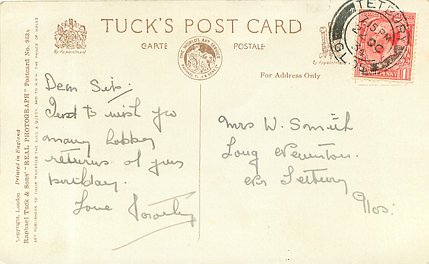 TUCK'S POST CARD
CARTE POSTALE
By Appointment
By Appointment
For Address Only
TETBURY
GLOS
Raphael Tuck & Sons' "REAL PHOTOGRAPH" Postcard No.
London Printed in England
Dear Sis,
Just to wish you
many happy
returns of your
birthday.
Love Dorothy
Mrs W. Smith
Long Newnton.
Nr Tetbury
Glos.